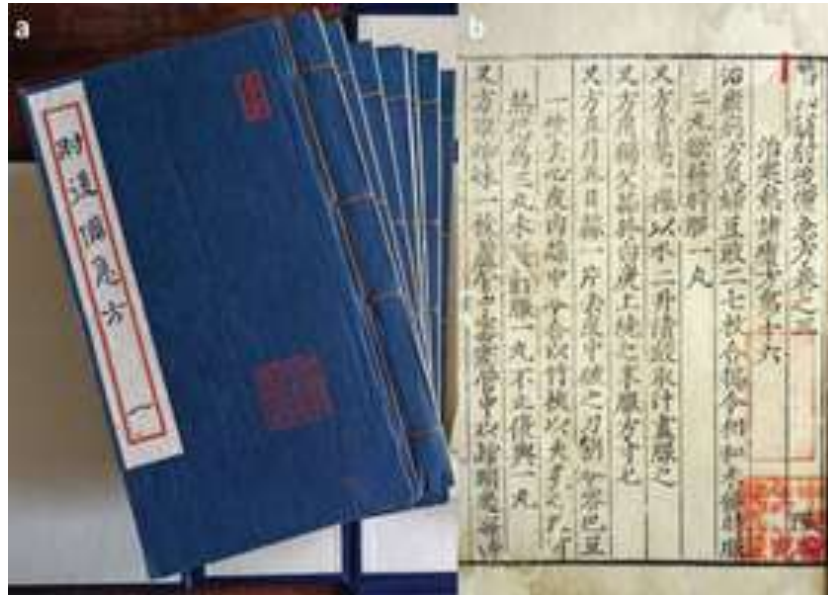 a
肘後備急方 一
b
肘後備急方卷之三
治寒熱諸瘧方第十六
治瘧病方鼠婦豆豉二七枚合搗令相和未發時服
二丸欲發時服一丸
又方青蒿一握以水二升漬絞取汁盡服之
又方用獨父蒜於白炭上燒之末服方寸匕
又方五月五日蒜一片去皮中破之刀割令容巴豆
一枚去心皮內蒜中令合以竹挾以火炙之取可
熱搗為三丸未發前服一丸不止復與一丸
又方取蜘蛛一枚蘆管中密塞管中以綰頸過發時